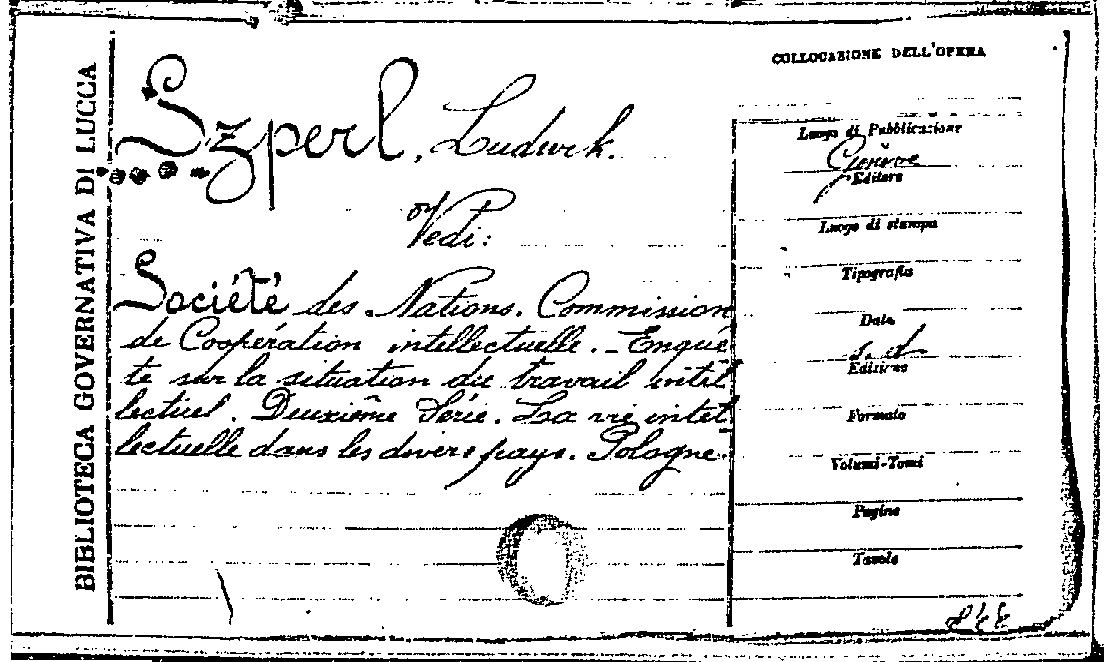 BIBLIOTECA GOVERNATIVA DI LUCCA
Szperl, Ludwik.
Vedi:
Société des Nations. Commission
de Coopération intellectuelle. - Enquê
te sur la situation du travail intel
lectuel. Deuxième Série. La vie intel
lectuelle dans les divers pays. Pologne.
COLLOCAZIONE DELL'OPERA
Luogo di Pubblicazione
Genève
Editore
Luogo di stampa
Tipografia
Data
s. d.
Edizione
Formato
Volumi-Tomi
Pagine
Tavole